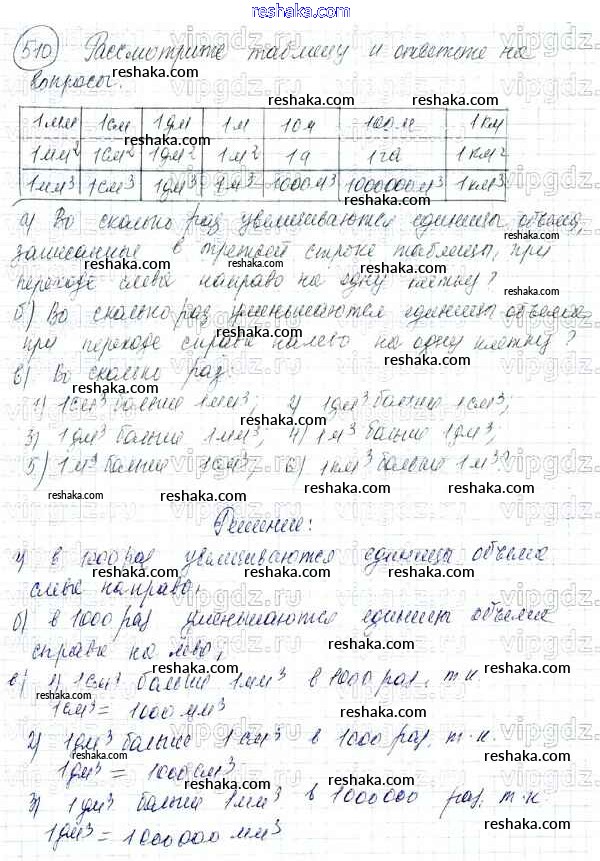 reshaka.com
510 Рассмотрите таблицу и ответьте на
вопросы.
1мм 1см 1дм 1м 10м 100м 1км
1мм² 1см² 1дм² 1м² 1а 1га 1км²
1мм³ 1см³ 1дм³ 1м³ 1000м³ 1000000м³ 1км³
а) Во сколько раз увеличиваются единицы объема,
записанные в третьей строке таблицы, при
переходе слева направо на одну клетку?
б) Во сколько раз уменьшаются единицы объема
при переходе справа налево на одну клетку?
в) Во сколько раз:
1) 1см³ больше 1мм³; 2) 1дм³ больше 1см³;
3) 1дм³ больше 1мм³; 4) 1м³ больше 1дм³;
5) 1м³ больше 1см³; 6) 1км³ больше 1м³?
Решение:
а) в 1000 раз увеличиваются единицы объема
слева направо;
б) в 1000 раз уменьшаются единицы объема
справа на лево;
в) 1) 1см³ больше 1мм³ в 1000 раз, т.к.
1см³ = 1000мм³
2) 1дм³ больше 1см³ в 1000 раз, т.к.
1дм³ = 1000см³
3) 1дм³ больше 1мм³ в 1000000 раз, т.к.
1дм³ = 1000000 мм³